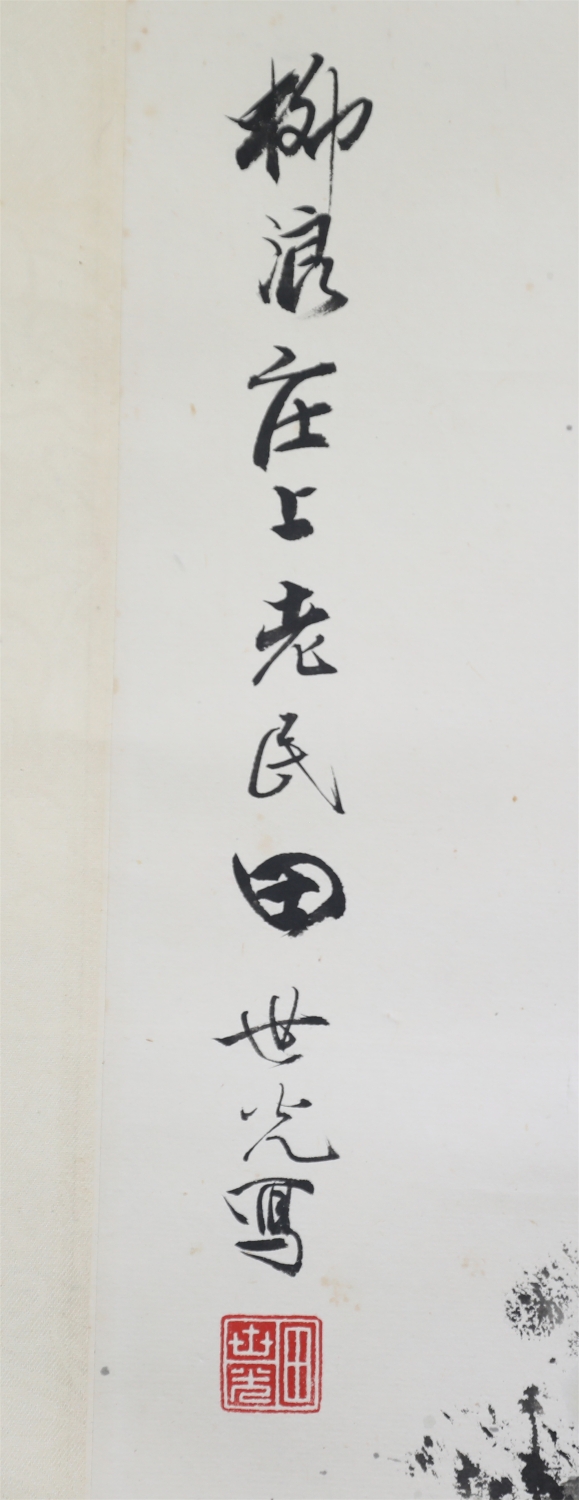 柳浪庄上老民田世光写
田世光